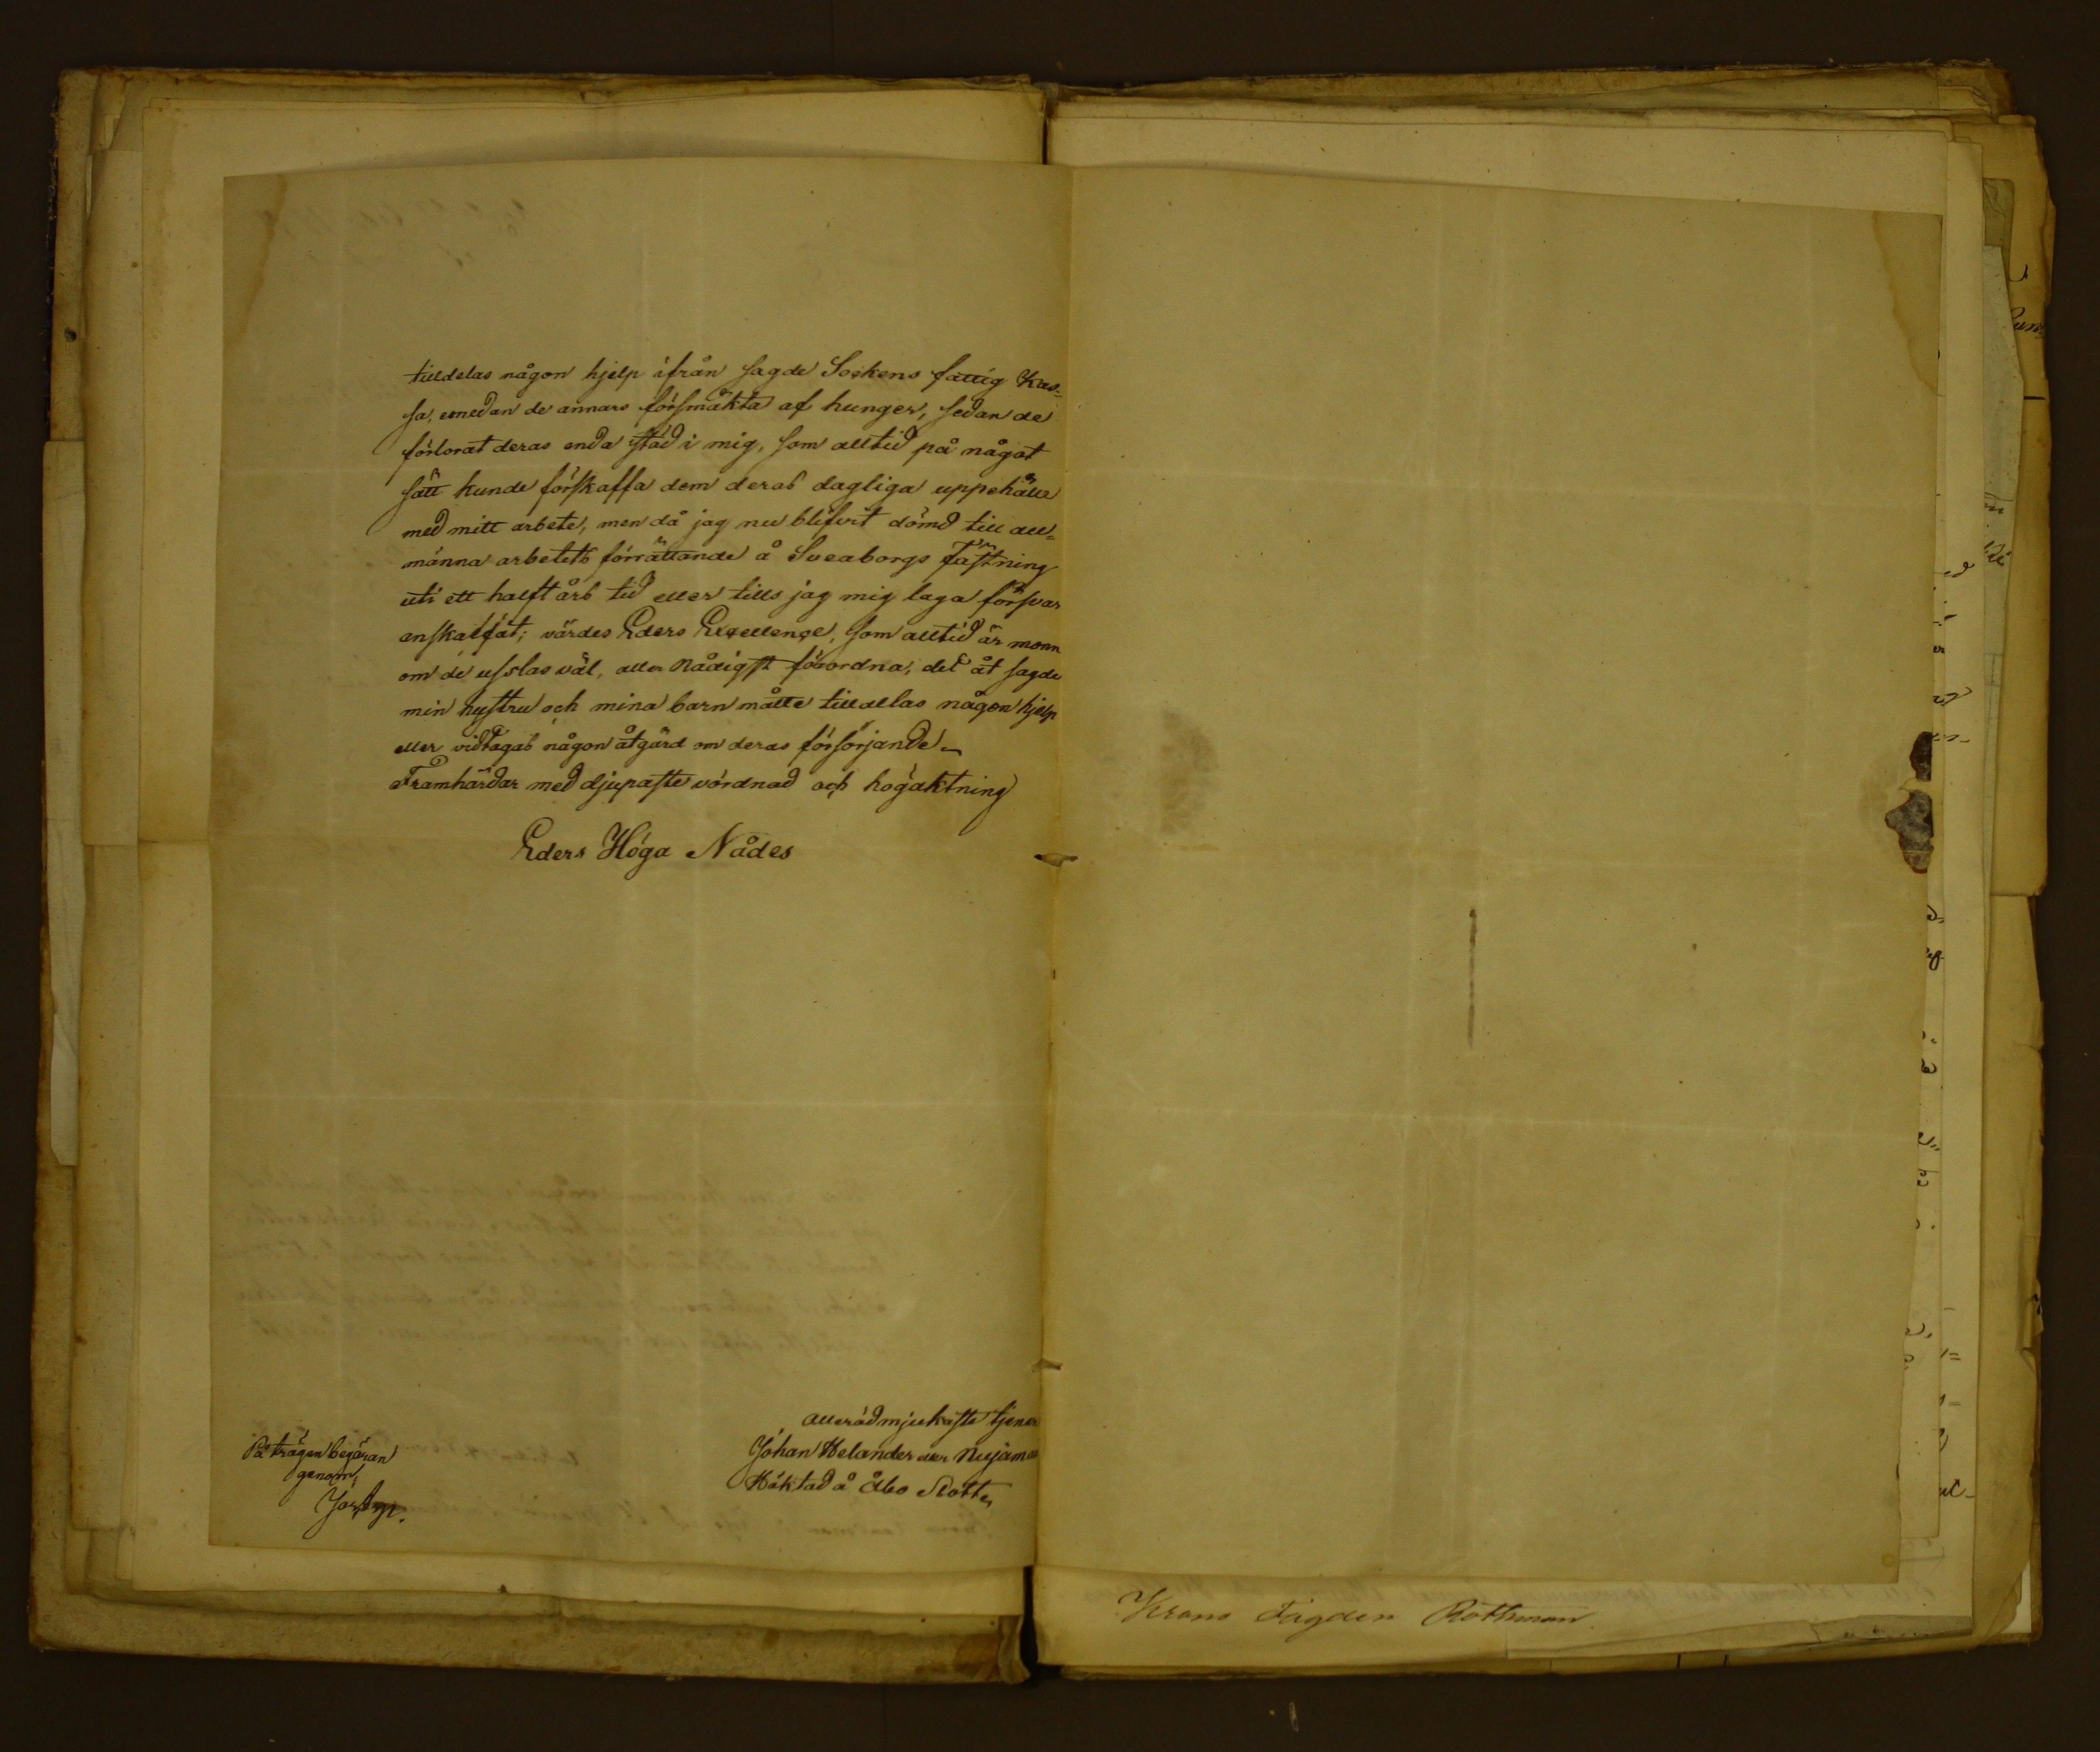 tilldelas någon hjelp ifrån sagde Sockens fattig Kas=
sa, emedan de annars försmäkta af hunger, sedan de
förlorat deras enda stöd i mig, som alltid på något
sätt kunde förskaffa dem deras dagliga uppehälle
med mitt arbete, men då jag nu blifvit dömd till all=
männa arbetets förrättande å Sveaborgs Fästning
uti ett halft års tid eller tills jag mig laga försvar
anskaffat; värdes Eders Excellençe, som alltid är monn
om de usslas väl, aller Nådigst förordna, det åt sagde
min hustru och mina barn måtte tilldelas någon hjelp
eller vidtagas någon åtgärd om deras försörjande.
Framhärdar med djupaste vördnad och högaktning
Eders Höga Nådes
allerödmjukaste tjenare
Johan Helander eller
Häktad å Åbo Slott
På trägen begäran
genom,
Krono Fogden Rothman.